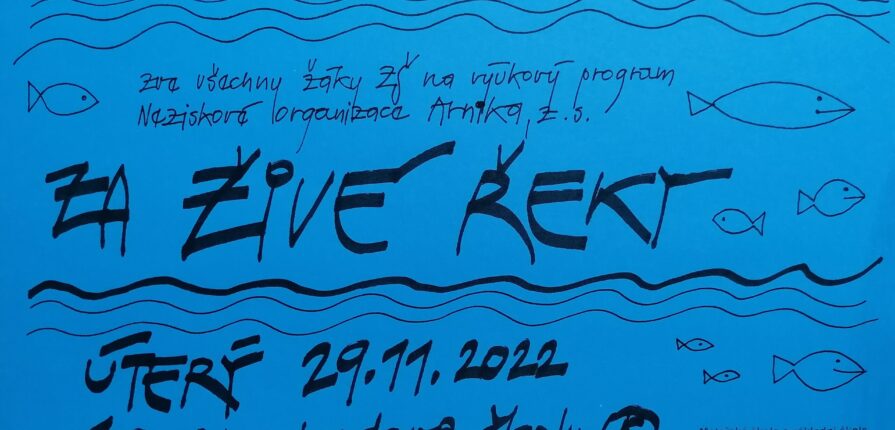 zve všechny žáky ZŠ na výukový program
Neziskové organizace Arnika, z.s.
ZA ŽIVÉ ŘEKY
ÚTERÝ 29.11.2022